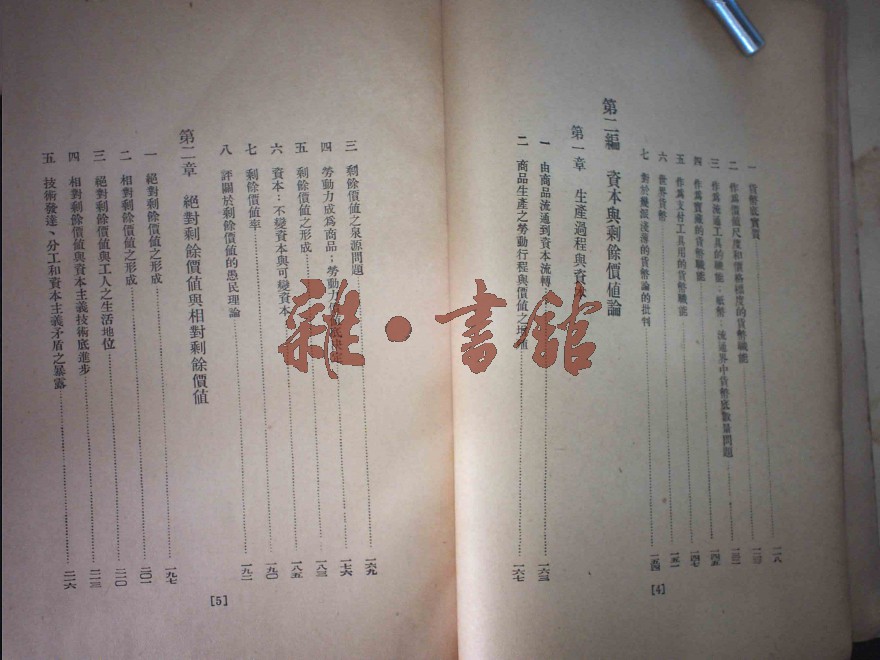 第二編 資本與剩餘價值論
一 貨幣底實質
二 作爲價值尺度和價格標度的貨幣職能
三 作爲流通工具的職能，紙幣，流通界中貨幣底數量問題……一四五
四 作爲寶藏的貨幣職能……一四七
五 作爲支付工具用的貨幣職能……一五一
六 世界貨幣……一五四
七 對於淺薄的貨幣論的批判
第一章 生產過程與資本
一 由商品流通到資本流轉……一六三
二 商品生產之勞動行程與價值之增殖……一六七
[4]
三 剩餘價值之泉源問題……一六九
四 勞動力成爲商品；勞動力……一七六
五 剩餘價值之形成……一八三
六 資本：不變資本與可變資本……一八五
七 剩餘價值率……一九〇
八 評關於剩餘價值的愚民理論……一九二
第二章 絕對剩餘價值與相對剩餘價值
一 絕對剩餘價值之形成……一九七
二 相對剩餘價值之形成……二〇一
三 絕對剩餘價值與工人之生活地位……二一〇
四 相對剩餘價值與資本主義技術底進步……二一三
五 技術發達、分工和資本主義矛盾之暴露……二一六
[5]
雜·書館